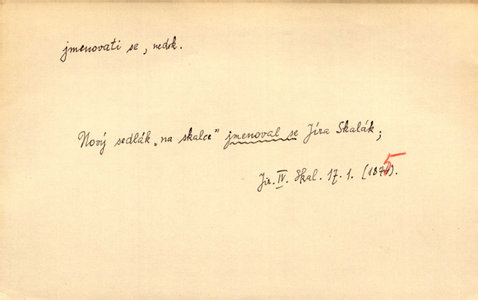 jmenovati se, nedok.
Nový sedlák „na skalce" jmenoval se Jíra Skalák;
Jir. IV. Skal. 17. 1. (1875).